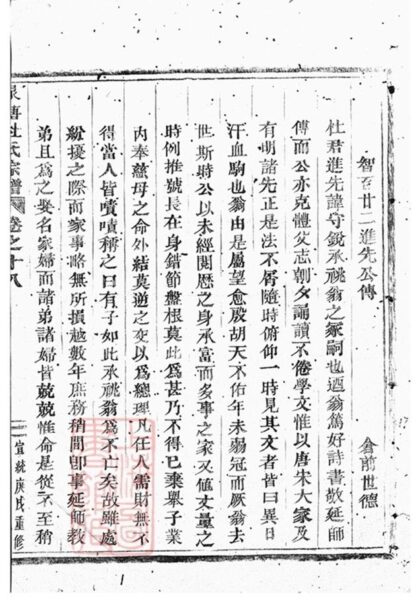 智百廿二進先公傳
倉前世德
杜君進先諱守銳承祧翁之冢嗣也迺翁篤好詩書敦延師
傅而公亦克體父志朝夕誦讀不倦學文惟以唐宋大家及
有明諸先正是法不屑隨時俯仰一時見其文者皆曰異日
汗血駒也翁由是屬望愈殷胡天不佑年未弱冠而厥翁去
世斯時公以未經閱歷之身承當而多事之家又值丈量之
時例推號長在身錯節盤根莫此為甚乃不得已棄舉子業
內奉慈母之命外結莫逆之交以為總理凡任人需財無不
得當人皆嘖嘖稱之曰有子如此承祧翁為不亡矣故雖處
紛擾之際而家事略無所損越數年庶務稍間即事延師教
弟且為之娶名家婦而諸弟諸婦皆兢兢惟命是從不至稍
杜氏宗譜
卷之十八
宣統庚戌重修